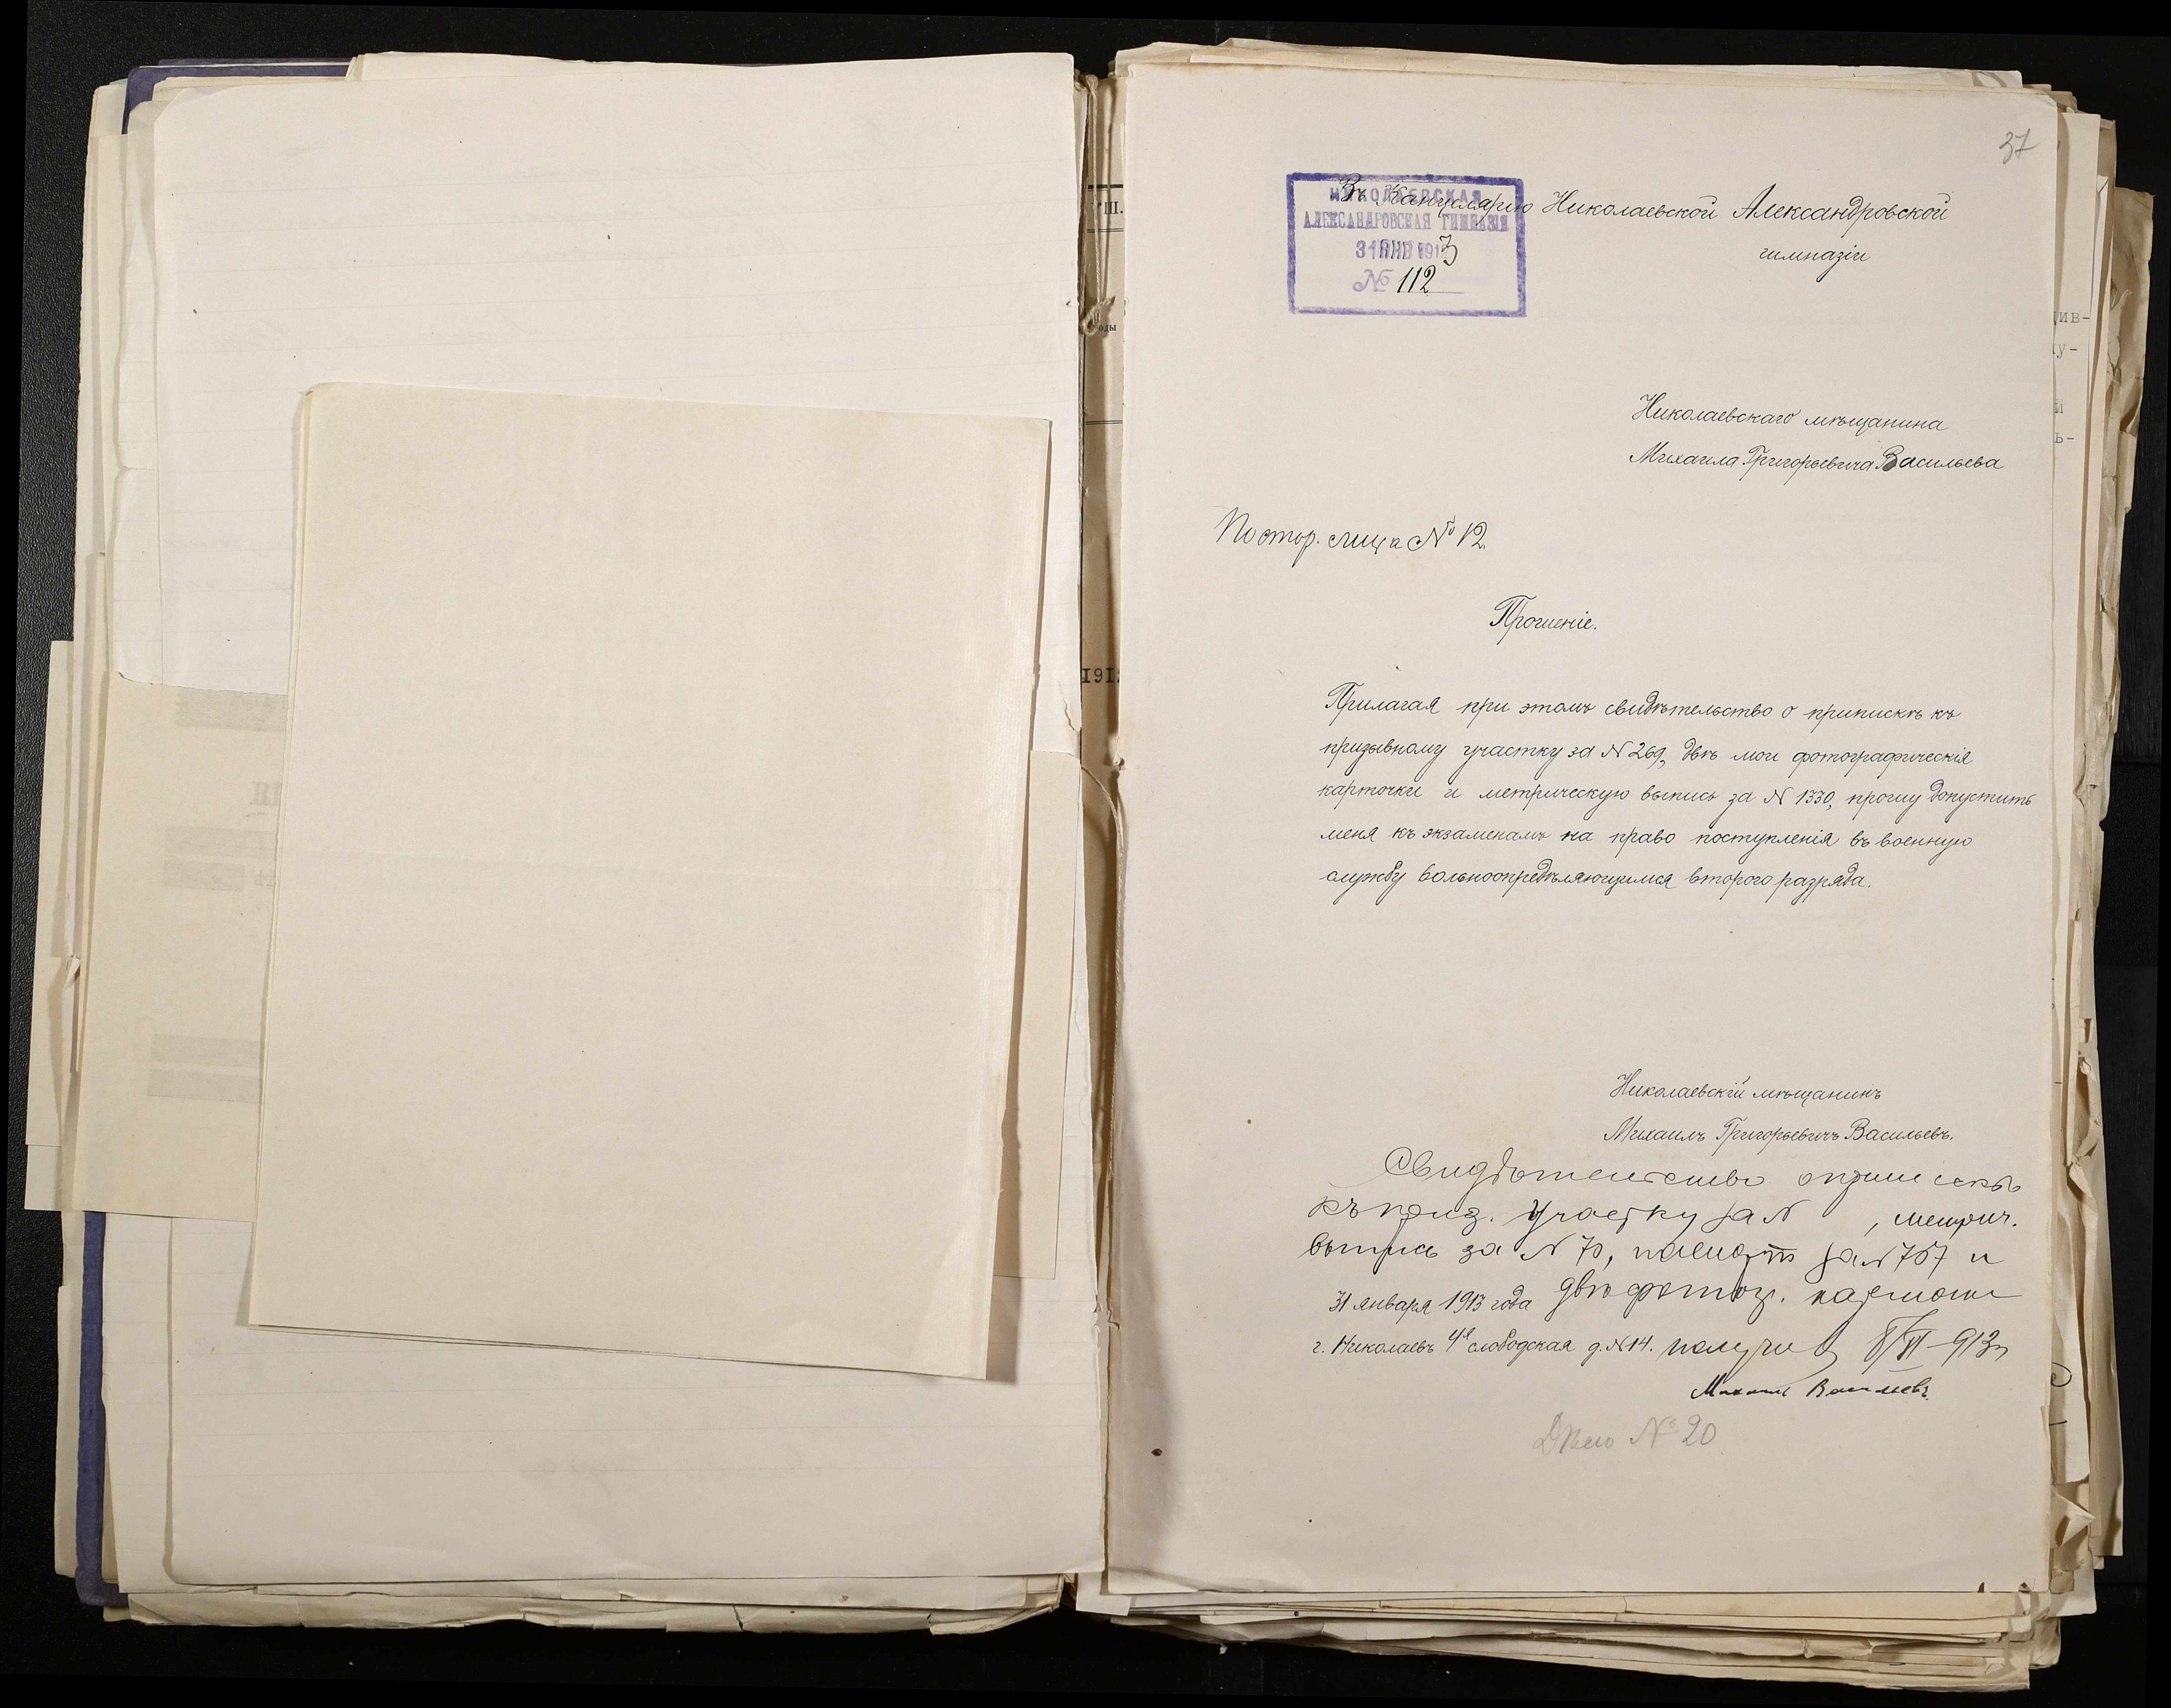 37
Въ Канцелярію Николаевской Александровской
гимназіи
НИКОЛАЕВСКАЯ
АЛЕКСАНДРОВСКАЯ ГИМНАЗІЯ
31 ЯНВ 1913
№ 112
Николаевскаго мѣщанина
Михаила Григорьевича Васильева
Постор. лица № 12.
Прошеніе.
Прилагая при этомъ свидѣтельство о припискѣ къ
призывному участку за № 269, двѣ мои фотографическія
карточки и метрическую выпись за № 1330, прошу допустить
меня къ экзаменамъ на право поступленія въ военную
службу вольноопредѣляющимся второго разряда.
Николаевскій мѣщанинъ
Михаилъ Григорьевичъ Васильевъ.
Свидѣтельство о припискѣ
къ приз. участку за №   , метрич.
выпись за № 70, паспортъ за № 757 и
двѣ фотогр. карточки
31 января 1913 года
г. Николаевъ 4я слободская д. № 14.
получилъ 8/VI 913 г
Михаил Васильевъ.
Дѣло № 20
191